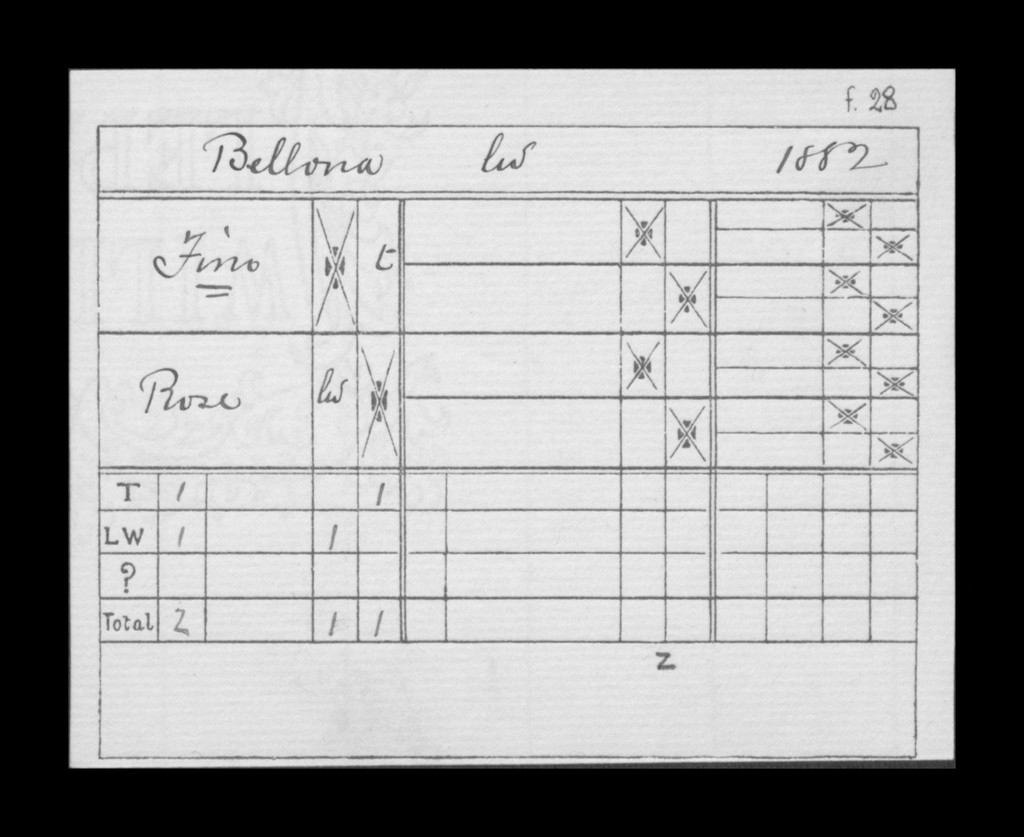 f. 28
Bellona lw 1882
Fino t
Rose lw
T 1 1
LW 1 1
?
Total 2 1 1
Z